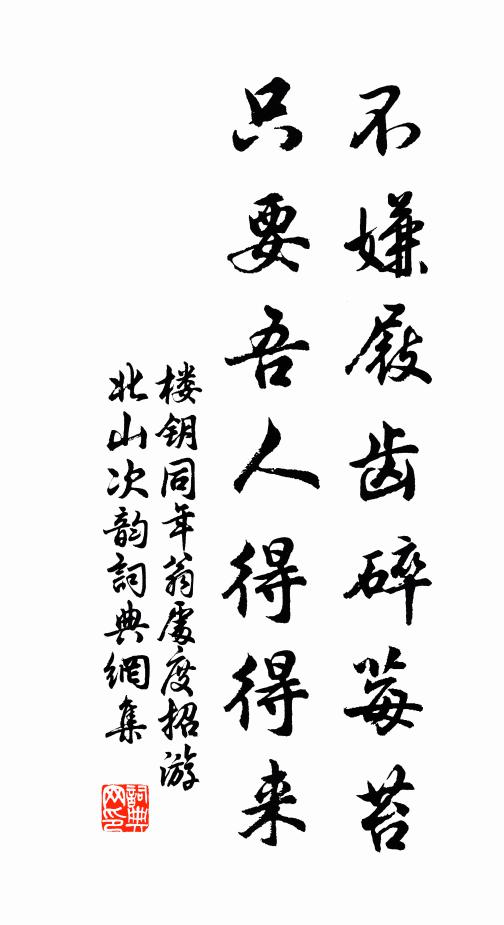 不嫌屐齿碎莓苔
只要吾人得得来
楼钥同年翁處度招游
北山次韵詞典網集
詞典网印